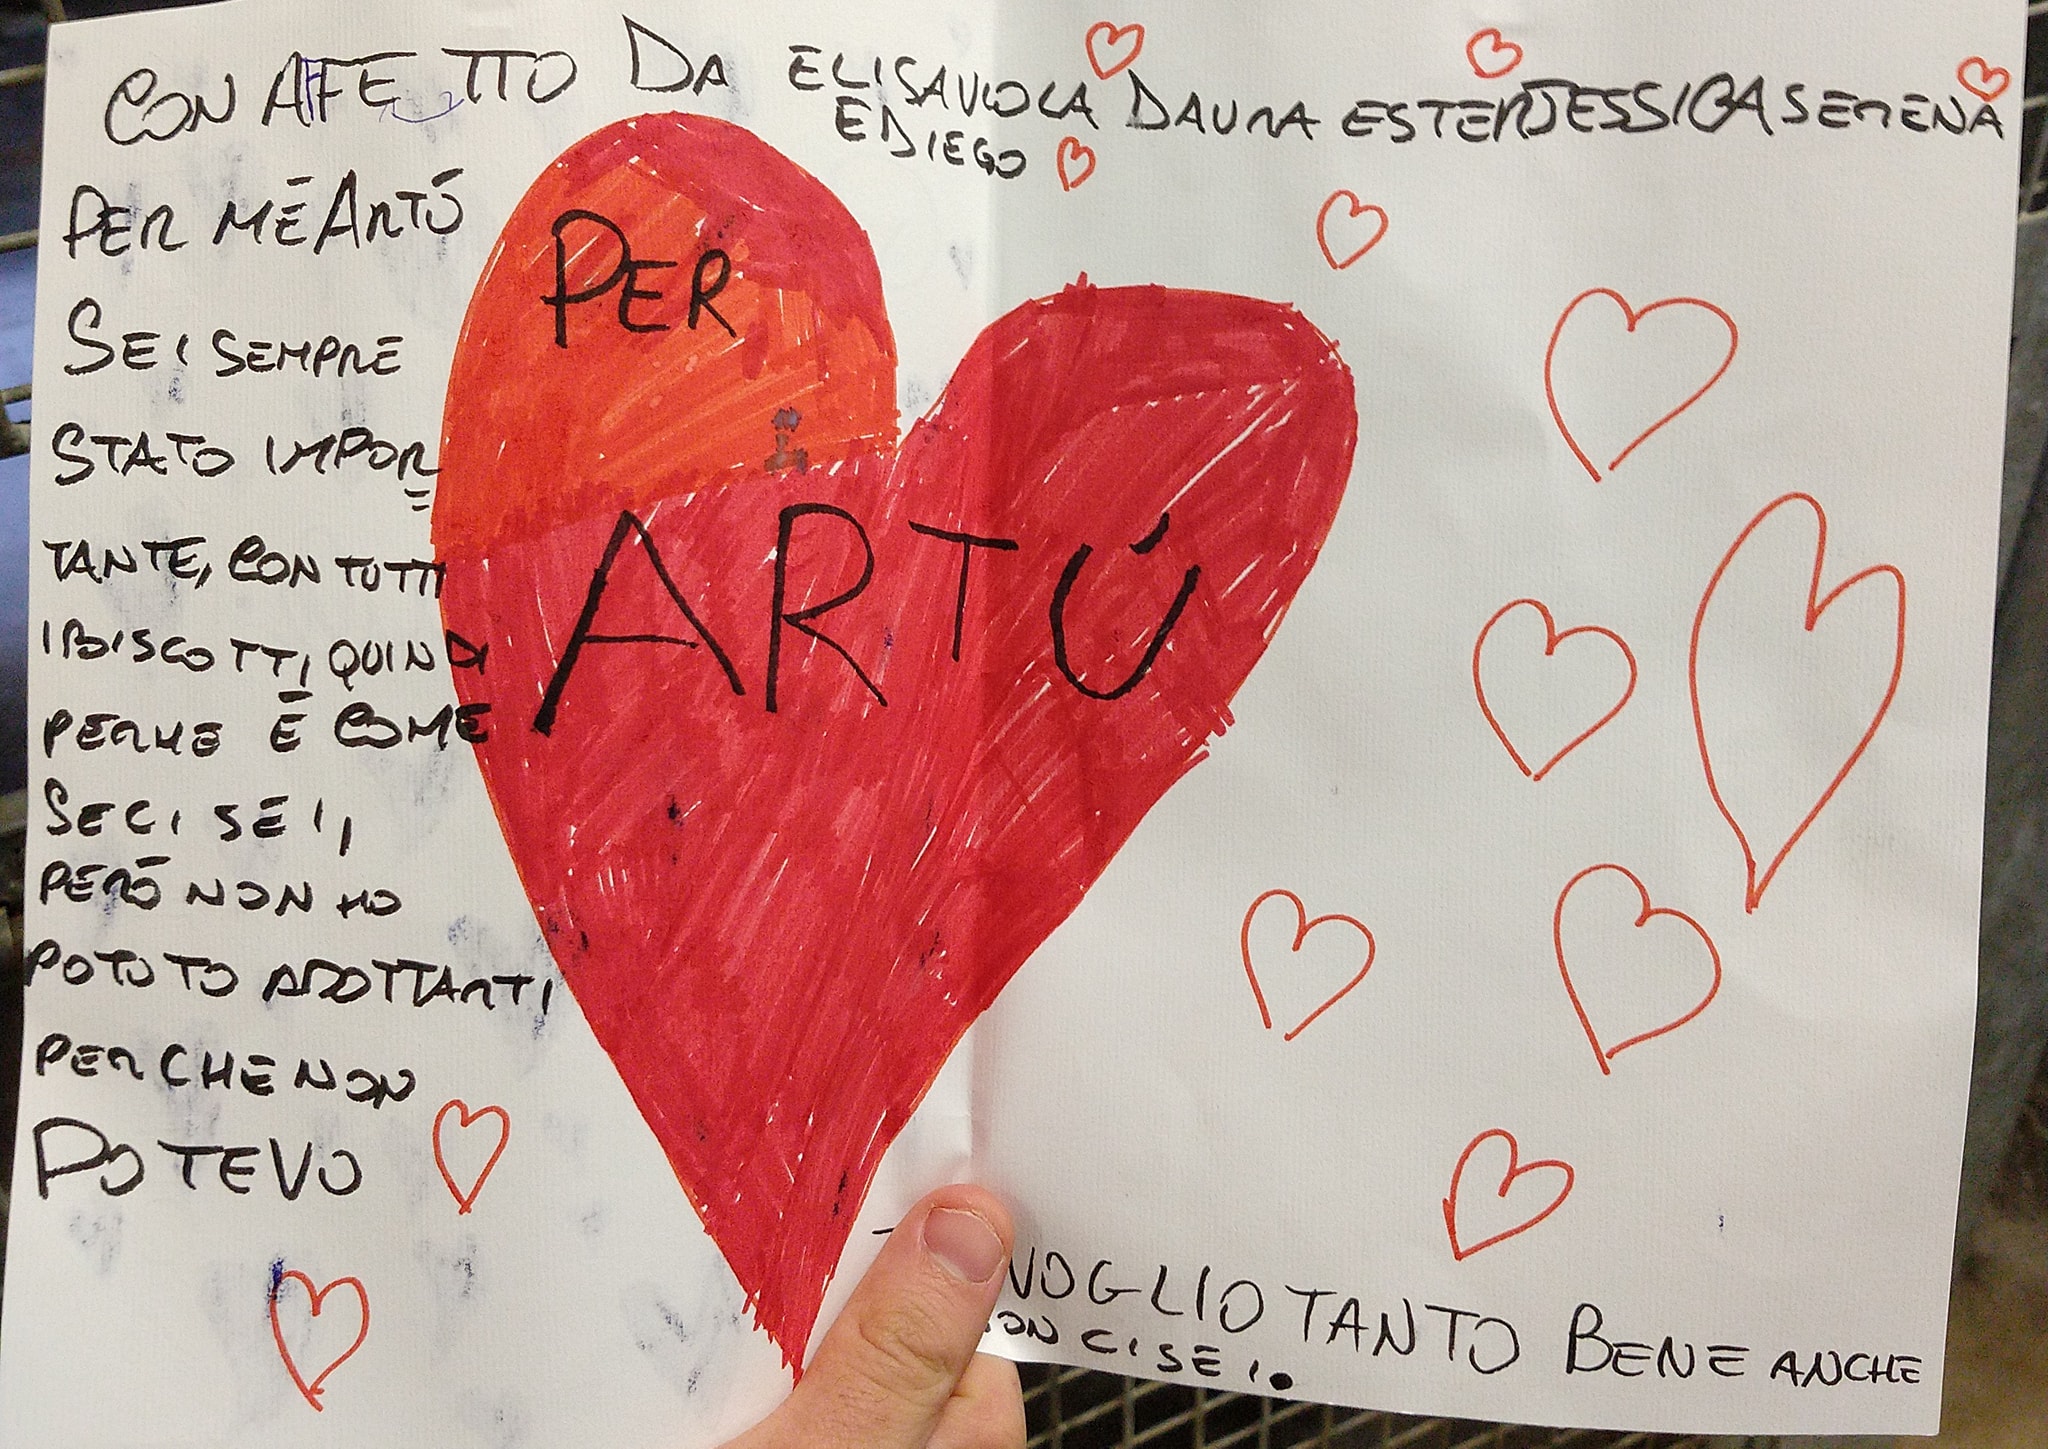 CON AFFETTO DA ELISA VIOLA DAURA ESTER JESSICA SERENA
E DIEGO
PER ME ARTÚ
SEI SEMPRE
STATO IMPOR=
TANTE, CON TUTTI
I BISCOTTI, QUINDI
PERHE É COME
SE CI SEI,
PERÒ NON HO
POTUTO ADOTTARTI
PERCHE NON
POTEVO
PER
ARTÚ
VOGLIO TANTO BENE ANCHE
CI SEI.